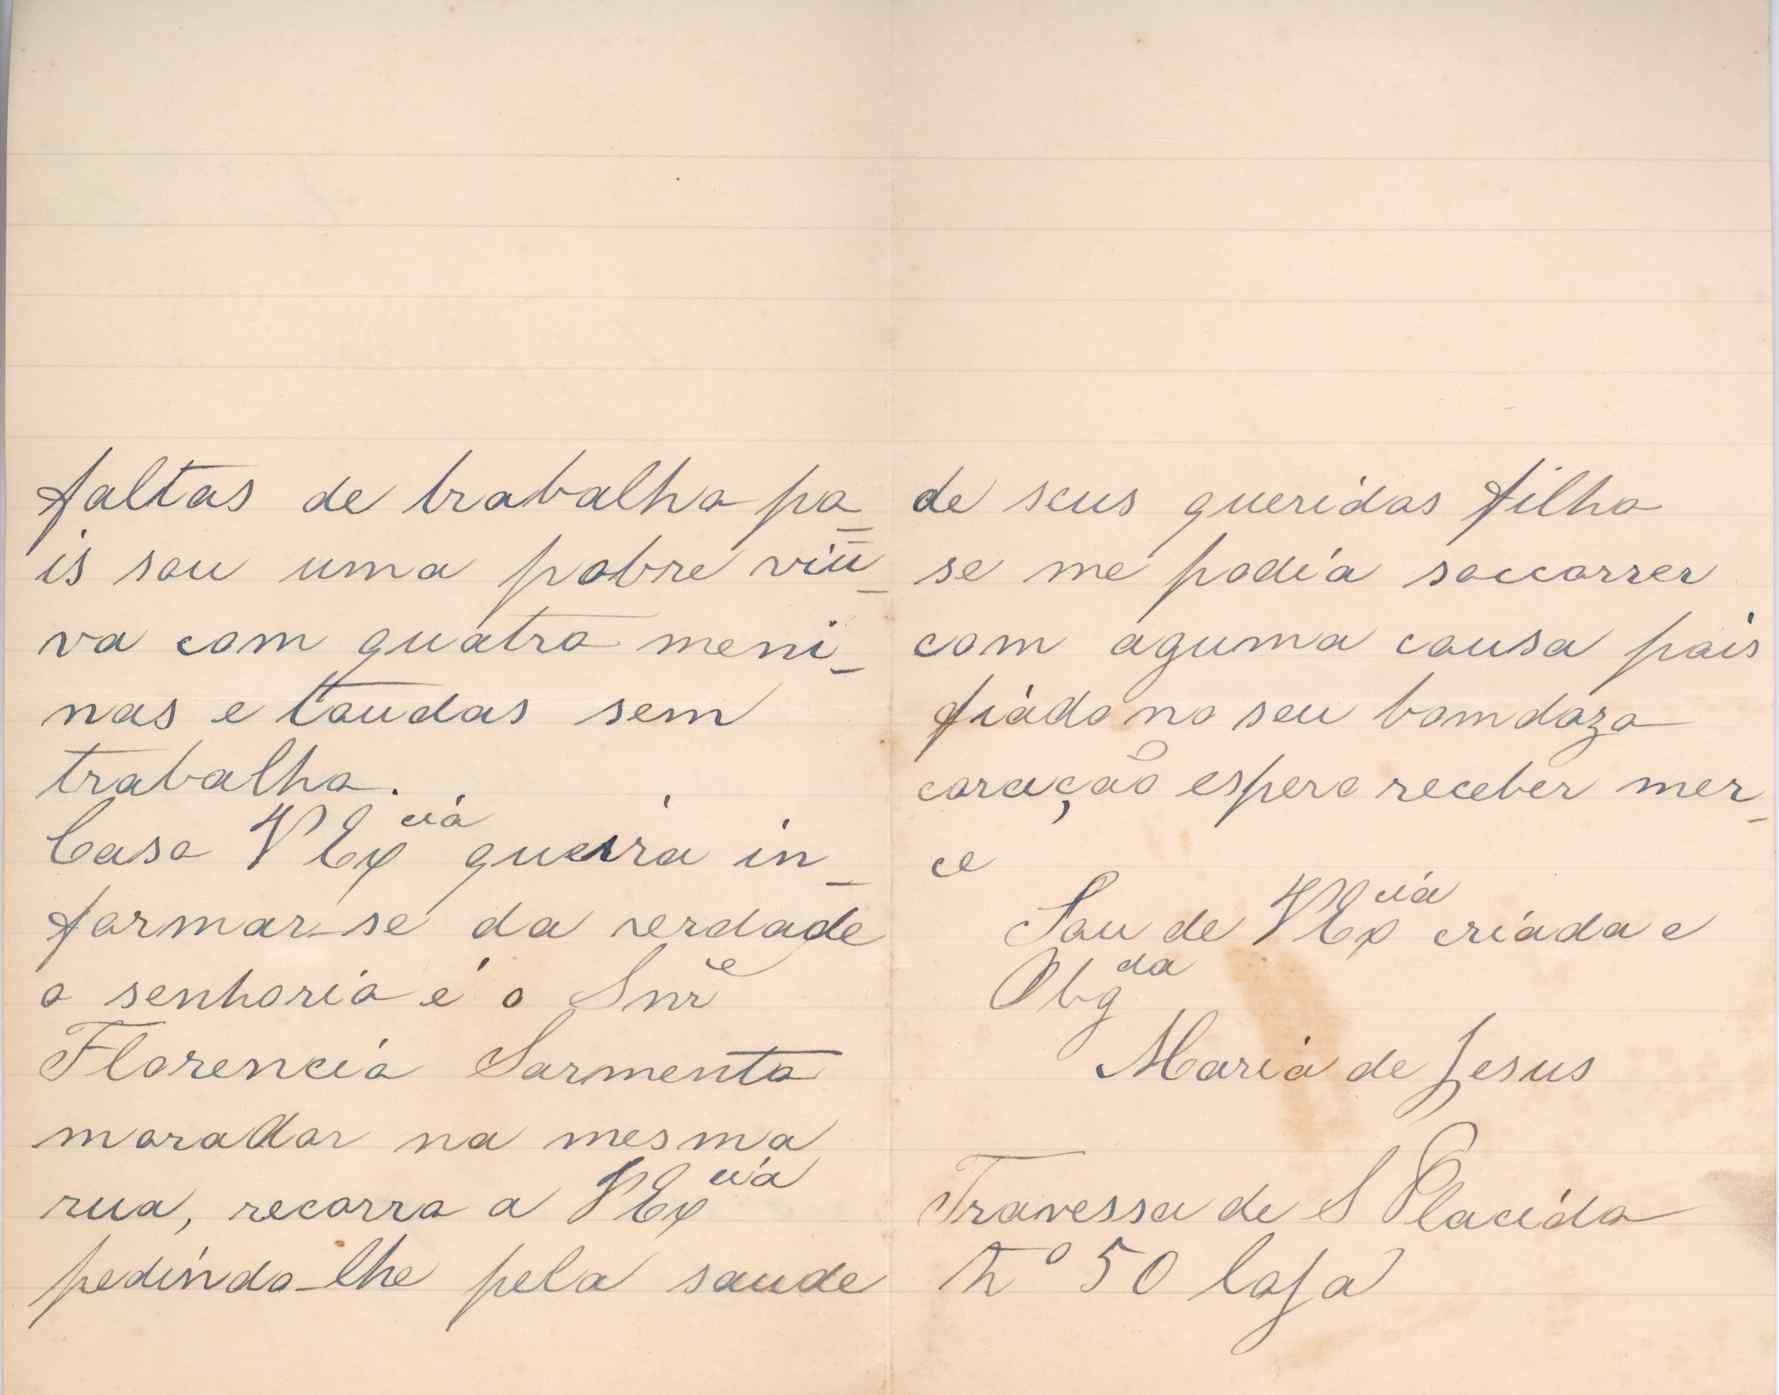 faltas de trabalho po_
is sou uma pobre viu_
va com quatro meni_
nas e toudas sem
trabalho.
Caso V Ex^cia queira in_
formar-se da verdade
o senhorio é o Snr^e
Florencio Sarmento
morador na mesma
rua, recorro a V Ex^cia
pedindo-lhe pela saude
de seus queridos filho
se me podia soccorrer
com aguma cousa pois
fiádo no seu bomdozo
coração espero receber mer_
ce
Sou de V Ex^cia criada e
Obg^da
Maria de Jesus
Travessa de S Placido
nº 50 loja